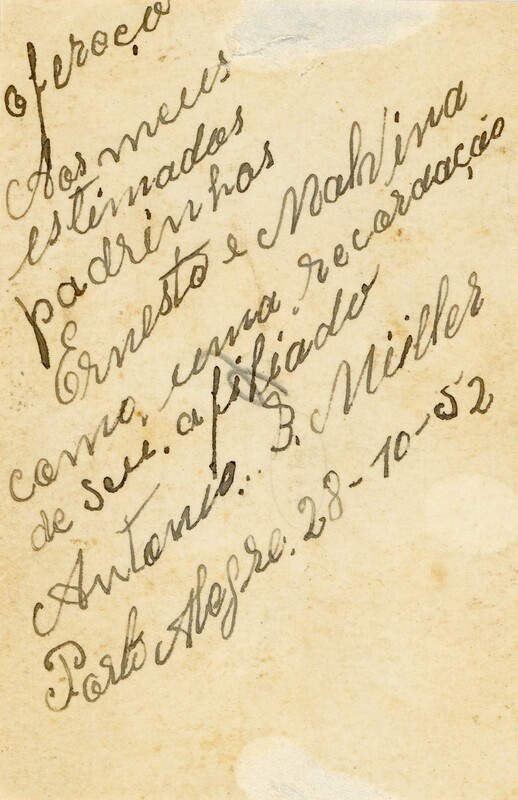 ofereço
Aos meus
estimados
padrinhos
Ernesto e Malvina
como, uma, recordação
de seu. afiliado
Antonio. B. Müller
Porto Alegre. 28-10-52